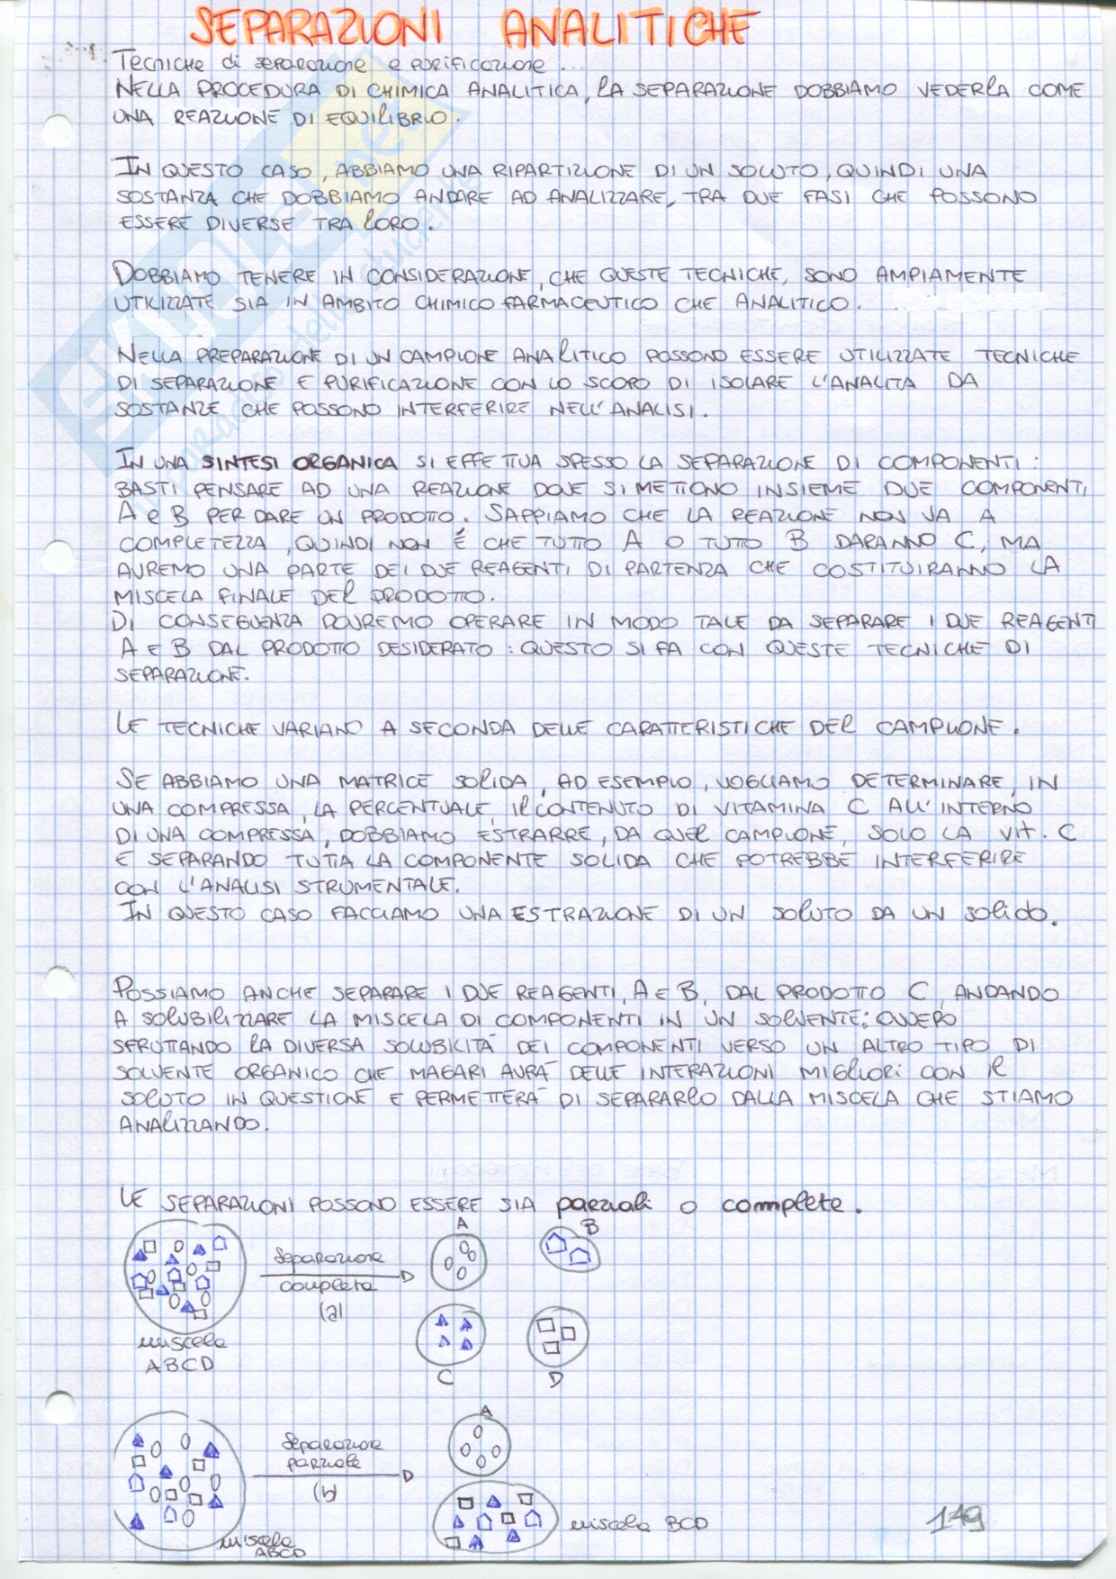 SEPARAZIONI ANALITICHE
Tecniche di separazione e purificazione...
NELLA PROCEDURA DI CHIMICA ANALITICA, LA SEPARAZIONE DOBBIAMO VEDERLA COME
UNA REAZIONE DI EQUILIBRIO.
IN QUESTO CASO, ABBIAMO UNA RIPARTIZIONE DI UN SOLUTO, QUINDI UNA
SOSTANZA CHE DOBBIAMO ANDARE AD ANALIZZARE, TRA DUE FASI CHE POSSONO
ESSERE DIVERSE TRA LORO.
DOBBIAMO TENERE IN CONSIDERAZIONE, CHE QUESTE TECNICHE, SONO AMPIAMENTE
UTILIZZATE SIA IN AMBITO CHIMICO FARMACEUTICO CHE ANALITICO.
NELLA PREPARAZIONE DI UN CAMPIONE ANALITICO POSSONO ESSERE UTILIZZATE TECNICHE
DI SEPARAZIONE E PURIFICAZIONE CON LO SCOPO DI ISOLARE L'ANALITA DA
SOSTANZE CHE POSSONO INTERFERIRE NELL'ANALISI.
IN UNA SINTESI ORGANICA SI EFFETTUA SPESSO LA SEPARAZIONE DI COMPONENTI:
BASTI PENSARE AD UNA REAZIONE DOVE SI METTONO INSIEME DUE COMPONENTI
A e B PER DARE UN PRODOTTO. SAPPIAMO CHE LA REAZIONE NON VA A
COMPLETEZZA, QUINDI NON È CHE TUTTO A O TUTTO B DARANNO C, MA
AVREMO UNA PARTE DEI DUE REAGENTI DI PARTENZA CHE COSTITUIRANNO LA
MISCELA FINALE DEL PRODOTTO.
DI CONSEGUENZA DOVREMO OPERARE IN MODO TALE DA SEPARARE I DUE REAGENTI
A E B DAL PRODOTTO DESIDERATO: QUESTO SI FA CON QUESTE TECNICHE DI
SEPARAZIONE.
LE TECNICHE VARIANO A SECONDA DELLE CARATTERISTICHE DEL CAMPIONE.
SE ABBIAMO UNA MATRICE SOLIDA, AD ESEMPIO, VOGLIAMO DETERMINARE, IN
UNA COMPRESSA, LA PERCENTUALE, IL CONTENUTO DI VITAMINA C ALL'INTERNO
DI UNA COMPRESSA, DOBBIAMO ESTRARRE, DA QUEL CAMPIONE, SOLO LA VIT. C
E SEPARANDO TUTTA LA COMPONENTE SOLIDA CHE POTREBBE INTERFERIRE
CON L'ANALISI STRUMENTALE.
IN QUESTO CASO FACCIAMO UNA ESTRAZIONE DI UN SOLUTO DA UN SOLIDO.
POSSIAMO ANCHE SEPARARE I DUE REAGENTI, A E B, DAL PRODOTTO C, ANDANDO
A SOLUBILIZZARE LA MISCELA DI COMPONENTI IN UN SOLVENTE; OVVERO
SFRUTTANDO LA DIVERSA SOLUBILITÀ DEI COMPONENTI VERSO UN ALTRO TIPO DI
SOLVENTE ORGANICO CHE MAGARI AVRÀ DELLE INTERAZIONI MIGLIORI CON IL
SOLUTO IN QUESTIONE E PERMETTERÀ DI SEPARARLO DALLA MISCELA CHE STIAMO
ANALIZZANDO.
LE SEPARAZIONI POSSONO ESSERE SIA parziali o complete.
A
B
Separazione
completa
(a)
miscela
ABCD
C
D
A
Separazione
parziale
(b)
miscela
ABCD
miscela BCD
149